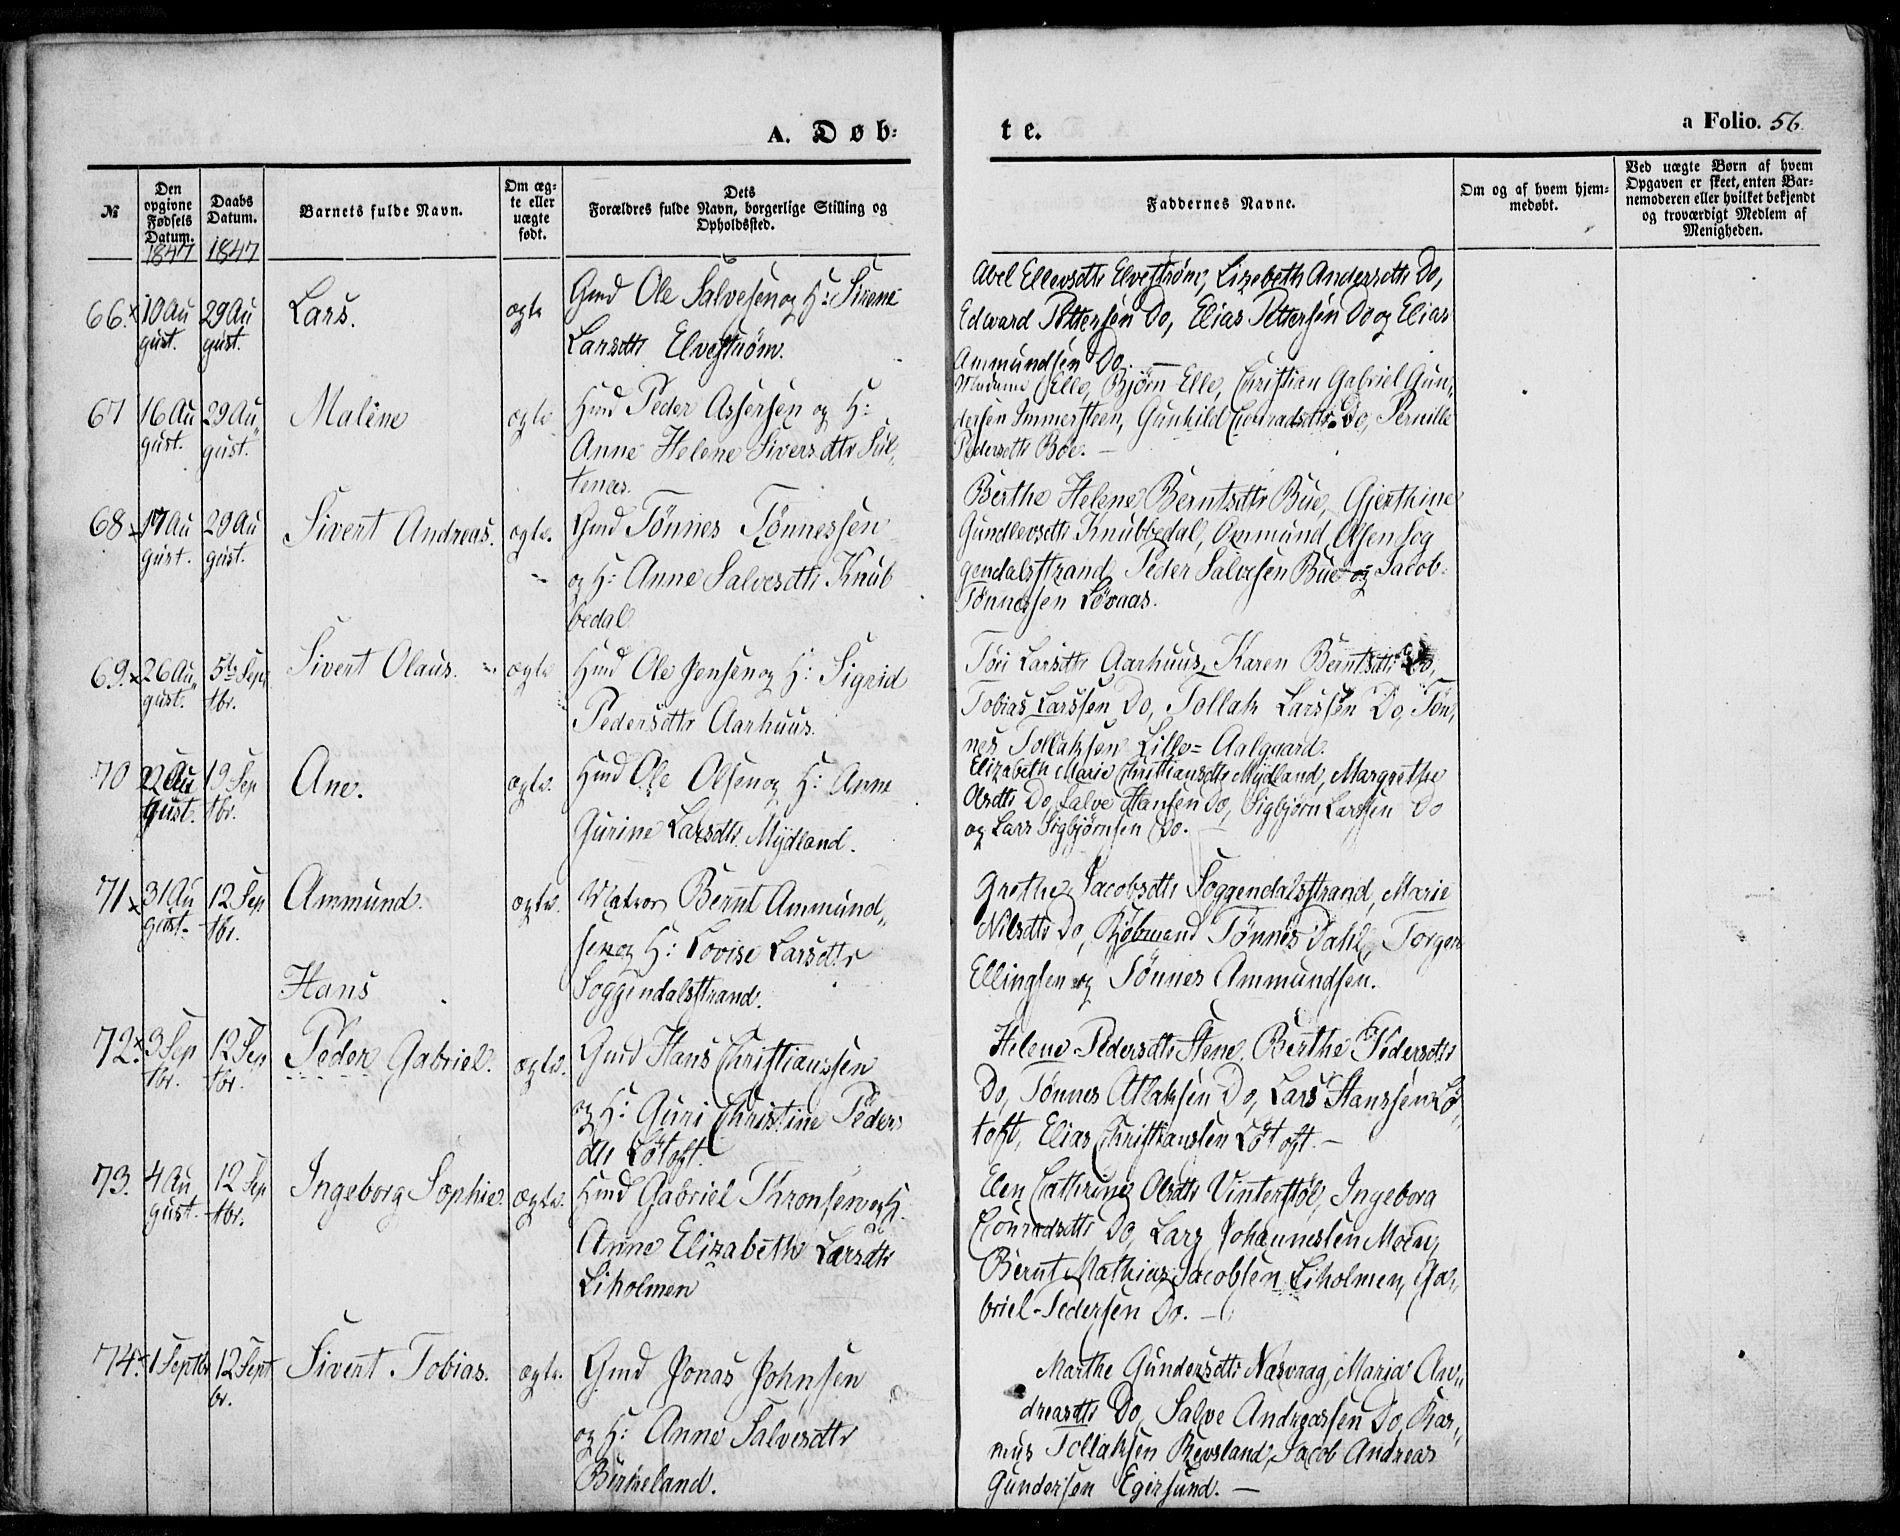 A. Døb-
te.
a Folio. 56.
№
Den opgivne Fødsels Datum.
1847
Daabs Datum.
1847
Barnets fulde Navn.
Om ægte eller uægte født.
Dets
Forældres fulde Navn, borgerlige Stilling og
Opholdssted.
Faddernes Navne.
Om og af hvem hjem-
medøbt.
Ved uægte Børn af hvem
Opgaven er skeet, enten Bar-
nemoderen eller hvilket bekjendt
og troværdigt Medlem af
Menigheden.
66. 10 Au 29 Au Lars. ægte Gmd Ole Salvesen og H: Sirene
gust. gust. Larsdtr Elvestrøm.
Abel Ellevsdtr Elvestrøm, Lizebeth Andersdtr Do,
Edward Pettersen Do, Elias Pettersen Do og Elias
Ammundsen Do. —
67 16 Au 29 Au Malene ægte Hmd Peder Assersen og H:
gust. gust. Anne Helene Siversdtr Sul-
tenas.
Madame Elle, Bjørn Elle, Christian Gabriel Gun-
dersen Immersteen, Gunhild Conradsdtr Do, Pernille
Pedersdtr Boe. —
68 17 Au 29 Au Sivert Andreas. ægte. Gmd Tønnes Tønnessen
gust. gust. og H: Anne Salvesdtr Knub
bedal
Berthe Helene Berntsdtr Bue, Gjerthine
Gundlevsdtr Knubbedal, Ommund Olsen Sog
gendalsstrand, Peder Salvesen Bue og Jacob
Tønnessen Løvaas.
69. 26 Au 5te Sep Sivert Olaus. ægte Hmd Ole Jensen og H: Sigrid
gust. tbr. Pedersdtr Aarhuus.
Tøri Larsdtr Aarhuus, Karen Berntsdtr Do,
Tobias Larssen Do, Tollak Larssen Do, Tøn,
nes Tollaksen Lille= Aalgaard.
70 22 Au 19 Sep Ane. ægte. Hmd Ole Olsen og H: Anne
gust. tbr. Gurine Larsdtr Mydland.
Elizabeth Marie Christiansdtr Mydland, Margrethe
Olsdtr Do, Salve Hansen Do, Sigbjørn Larssen Do
og Lars Sigbjørnsen Do. —
71 31 Au 12 Sep Ammund. ægte. Matros Bernt Ammund-
gust. tbr. sen og H: Lovise Larsdtr
Soggendalsstrand.
Grethe Jacobsdtr Soggendalsstrand, Marie
Nilsdtr Do, Kjøbmand Tønnes Dahl, Torger
Ellingsen og Tønnes Ammundsen.
Hans
72. 3 Sep 12 Sep Peder Gabriel. ægte. Gmd Hans Christianssen
tbr. tbr. og H: Guri Christine Peders
dtr Løtoft.
Helene Pedersdtr Stene, Berthe Pedersdtr
Do, Tønnes Atlaksen Do, Lars Hanssen Lø,
toft, Elias Christianssen Løtoft. —
73. 4 Au 12 Sep Ingeborg Sophie. ægte. Hmd Gabriel Thronsen og H.
gust. tbr. Anne Elizabeth Larsdtr
Liholmen
Elen Cathrine Olsdtr Vinterstøl, Ingeborg
Conradsdtr Do, Lars Johannessen Moene,
Bernt Mathias Jacobsen Liholmen, Ga,
briel Pedersen Do. —
74. 1 Septbr 12 Sept Sivert Tobias. ægte. Gmd Jonas Johnsen
br. og H: Anne Salvesdtr
Birkeland.
Marthe Gundersdtr Næsvaag, Maria An-
dreasdtr Do, Salve Andreassen Do, Ras-
mus Tollaksen Revsland, Jacob Andreas
Gundersen Egersund. —